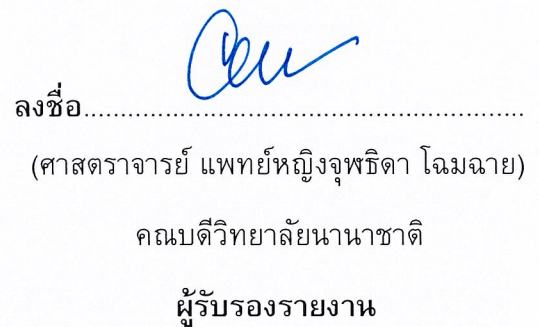 ลงชื่อ......................................................
(ศาสตราจารย์ แพทย์หญิงจุฬธิดา โฉมฉาย)
คณบดีวิทยาลัยนานาชาติ
ผู้รับรองรายงาน